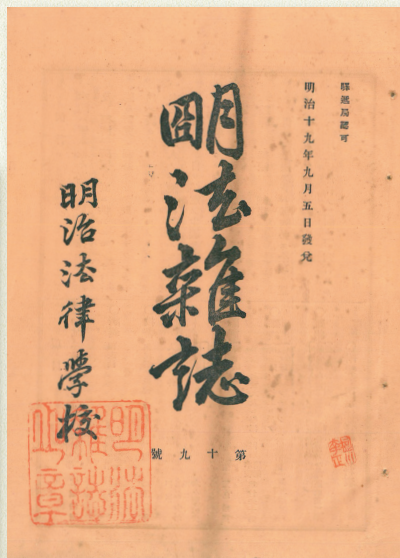 驛遞局認可
明治十九年九月五日發兌
明法雜誌
第十九號
明治法律學校
明法雜誌之章